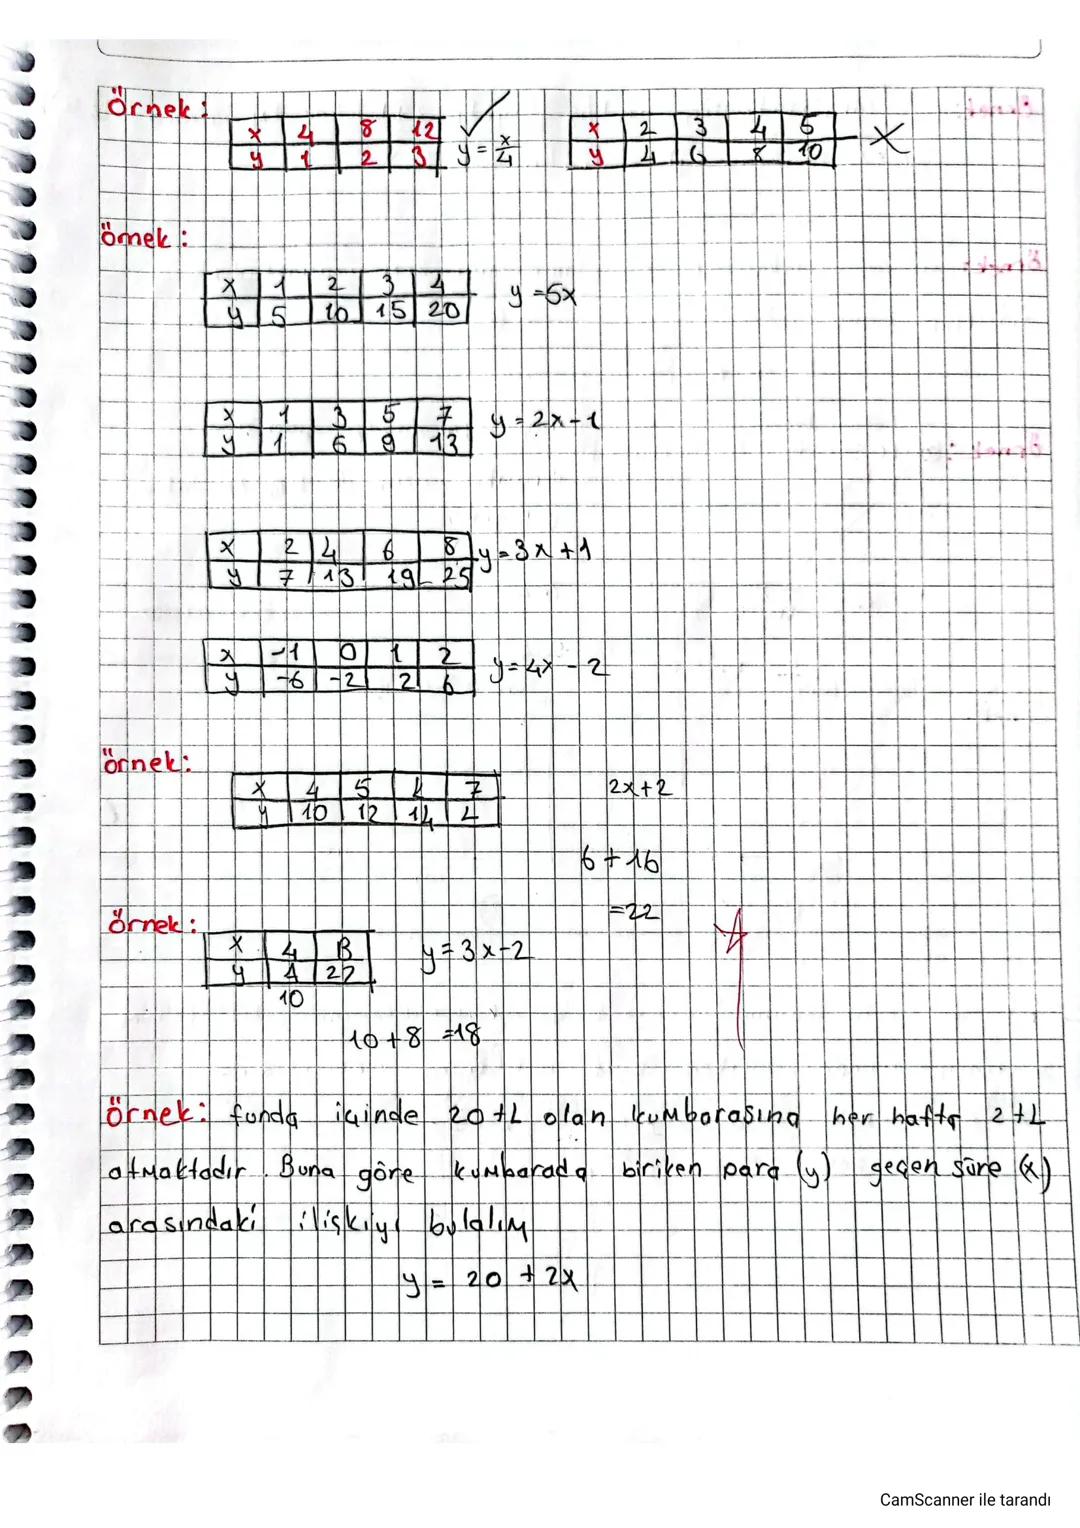 Örnek:
x 4 8 12
y 1 2 3
y = x/4
x 2 3 4 5
y 4 6 8 10
örnek:
x 1 2 3 4
y 5 10 15 20
y = 5x
x 1 3 5 7
y 1 6 9 13
y = 2x - 1
x 2 4 6 8
y 7 13 19 25
y = 3x + 1
x -1 0 1 2
y -6 -2 2 6
y = 4x - 2
örnek:
x 4 5 k 7
y 10 12 14 L
2x+2
6 + 16
=22
örnek:
x 4 B
y A 22
10
y = 3x-2
10+8 =18
örnek: funda içinde 20 tL olan kumbarasına her hafta 2 tL
atmaktadır. Buna göre kumbarada biriken para (y) geçen süre (x)
arasındaki ilişkiyi bulalım
y = 20 + 2x
CamScanner ile tarandı